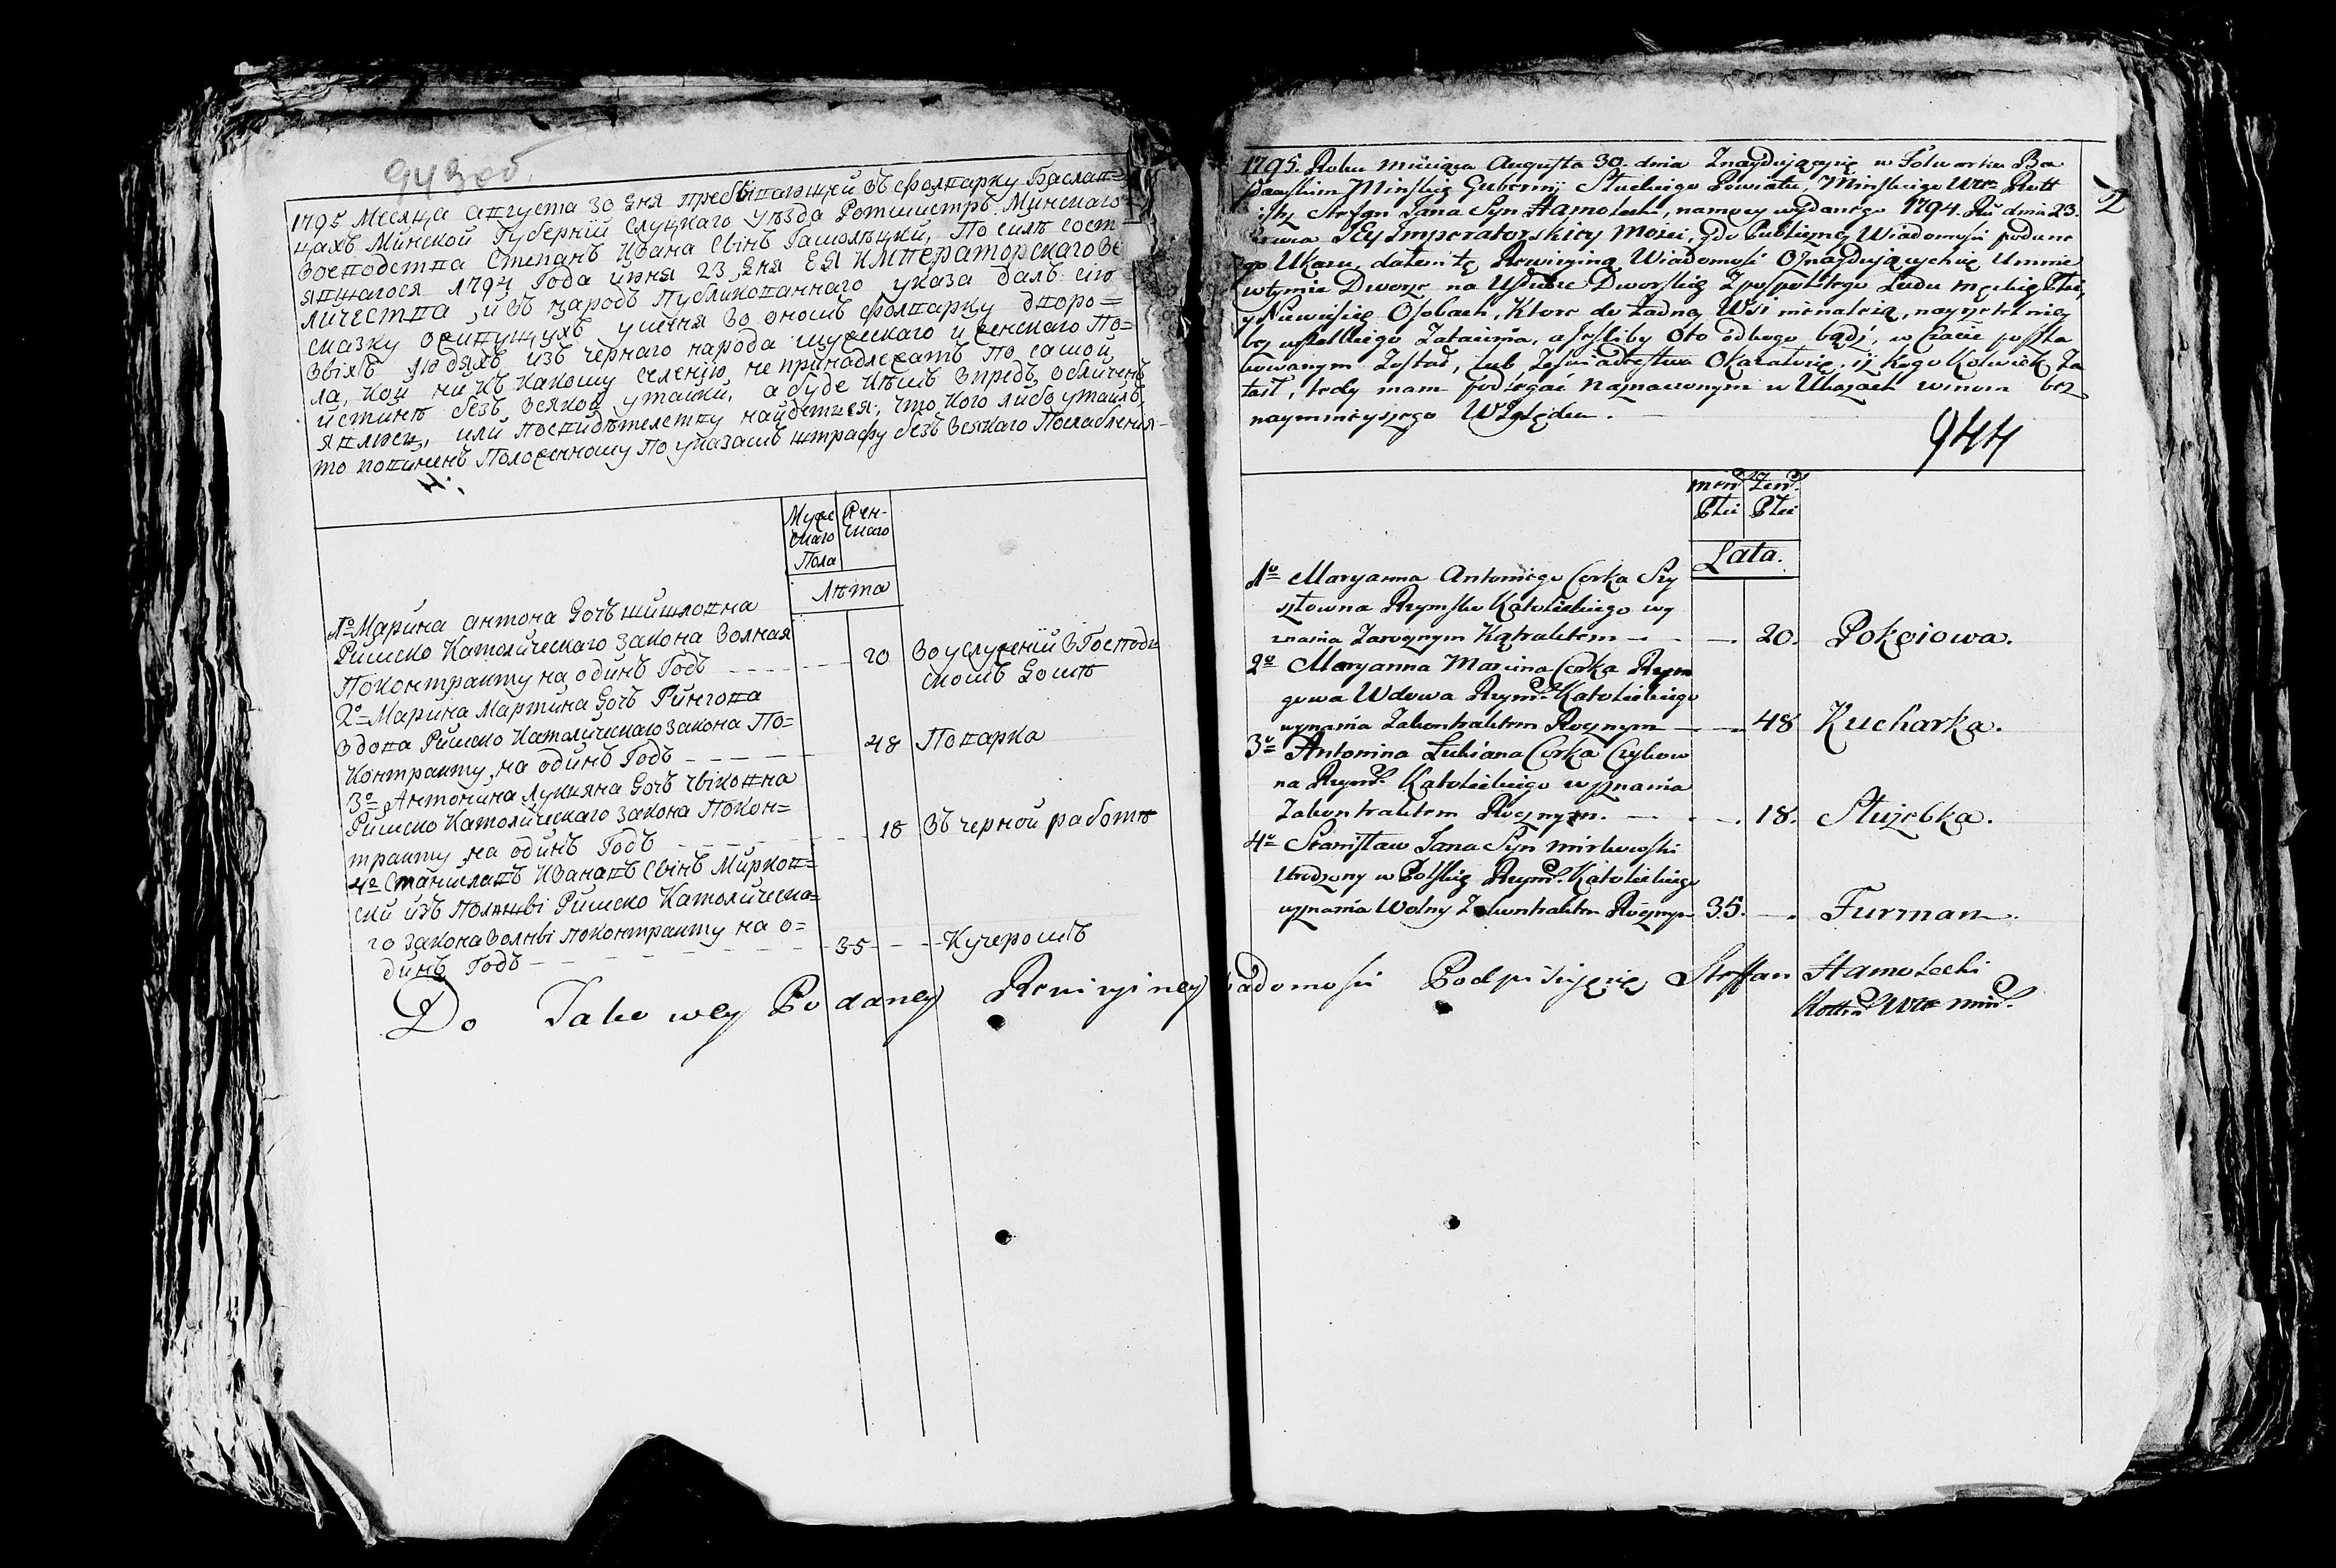 943 об.
1795 Месяца августа 30 дня пребывающей въ фолварку Баслав=
цахъ Минской Губерніи Слуцкаго уѣзда Ротмистръ Минскаго
Воеводства Степанъ Ивана Сынъ Гамолѣцки, По силѣ сост
явшагося 1794 Года июня 23 дня ЕЯ ИМПЕРАТОРСКАГО Ве
личества, и въ народъ Публикованнаго указа далъ сию
сказку о сущихъ у меня во ономъ фолварку дворо=
выхъ людяхъ изъ чернаго народа мужескаго и женскаго По=
ла, кои ни къ какому селенію не принадлежатъ по самой
истинѣ безъ всякой утайки, а буде кѣмъ впредь обличенъ
явлюсь, или по свидѣтельству найдется, что кого либо утаилъ,
то повиненъ Положенному по указамъ штрафу безъ всякаго Послабленія
Муже Жен-
скаго скаго
Пола
Лѣта
1º Марина антона дочь шишловна
Римско Католическаго закона Волная
По контракту на одинъ Годъ — 20 Во услуженіи в Господ
скомъ домѣ
2º Марина Мартина дочь Рингова
вдова Римско Католическаго закона По=
контракту на одинъ Годъ — 48 Поварка
3º Антонина лукьяна дочь чыковна
Римско Католическаго закона По кон=
тракту на одинъ Годъ — 18 Въ черной работѣ
4º Станиславъ Ивановъ Сынъ Мирков=
ски изъ Полшы Римско Католическа=
го закона волны по контракту на о=
динъ Годъ — 35 — Кучеромъ
Do Takowey Podaney Rewizyiney Wiadomosci Podpisuję się Steffan Hamolecki
Rottm Wa Min.
2
1795. Roku miesiąca Augusta 30. dnia Znayduiący się w Folwarku Ba
sławskim Minskiey Gubernij Słuckiego Powiatu, Minskiego Wa Rott
Stefan Jana Syn Hamolecki, na mocy wydanego 1794. Ru dnia 23.
JEy Imperatorskiey Mości, y do Publiczney Wiadomości podane
go Ukazu, dałem tę Rewizyiną Wiadomość o Znayduiących się Umnie
w tymże Dworze na Usłudze Dworskiey z pospolitego Ludu męskiey Płci,
y Niewieśćiey Osobach, Ktore do żadney Wsi nienależą, nayrzetelniey
bez wszelkiego Zataienia, a Jeśliby oto od kogo bądź, w czasie poszla
kowanym Został, lub Ze swiadectwa Okazałosię, iż kogo Kolwiek Za
taił, tedy mam podlegać Naznaczonym w Ukazach winom bez
naymnieyszego Względu.
944
męs. Żeń.
Płci Płci
Lata.
1º Maryanna Antoniego Corka Szy
szłowna Rzymsko Katolickiego wy
znania Zarocznym Kątraktem — 20. Pokoiowa.
2º Maryanna Marcina Corka Ryn
gowa Wdowa Rzym. Katolickiego
wyznania Zakontraktem Rocznym — 48 Kucharka.
3º Antonina Łukiana Corka Czykow
na Rzym. Katolickiego wyznania
Zakontraktem Rocznym. — 18. Służebka.
4º Stanisław Jana Syn Mirkowski
Urodzony w Polskiey Rzym. Katolickiego
wyznania Wolny Zakontraktem Rocznym 35. — Furman.